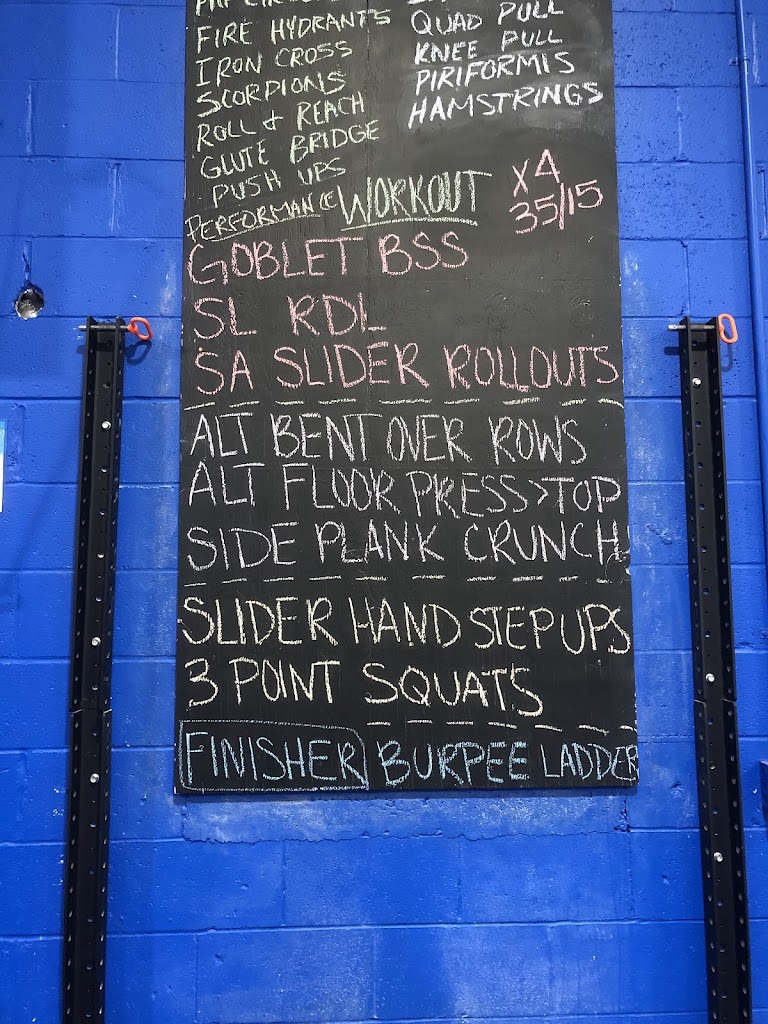 FIRE HYDRANTS
IRON CROSS
SCORPIONS
ROLL & REACH
GLUTE BRIDGE
PUSH UPS
QUAD PULL
KNEE PULL
PIRIFORMIS
HAMSTRINGS
PERFORMANCE WORKOUT X4
35/15
GOBLET BSS
SL RDL
SA SLIDER ROLLOUTS
ALT BENT OVER ROWS
ALT FLOOR PRESS>TOP
SIDE PLANK CRUNCH
SLIDER HAND STEP UPS
3 POINT SQUATS
FINISHER BURPEE LADDER